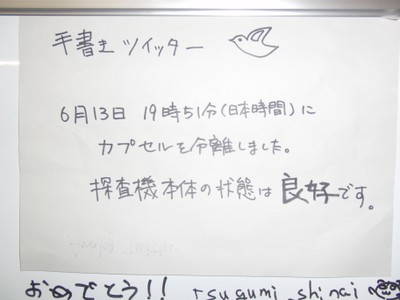 手書きツイッター
6月13日 19時51分(日本時間)に
カプセルを分離しました。
探査機本体の状態は良好です。
おめでとう!! tsugumi_shinai